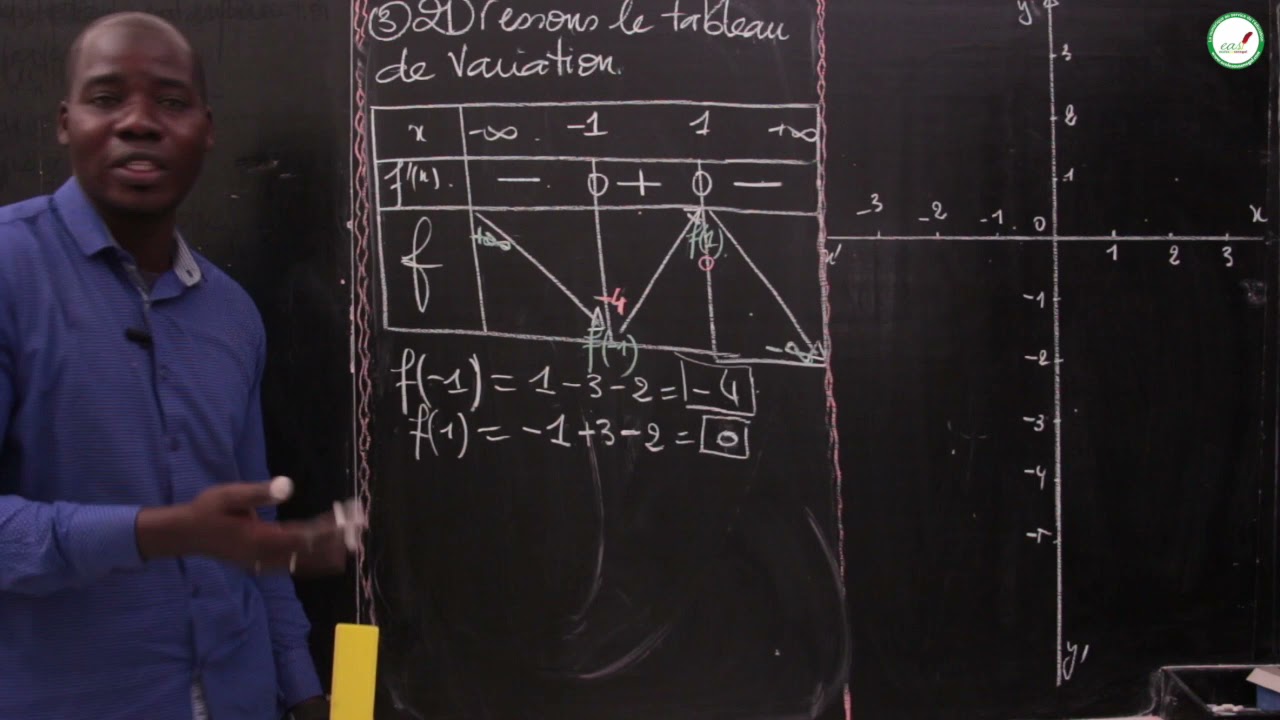 ③ Dressons le tableau
de variation.
x -∞ -1 1 +∞
f'(x) - 0 + 0 -
f +∞ -4 f(-1) f(1) 0 -∞
f(-1) = 1 - 3 - 2 = -4
f(1) = -1 + 3 - 2 = 0
y
3
2
1
-3 -2 -1 0 x
x' 1 2 3
-1
-2
-3
-4
y'
eas